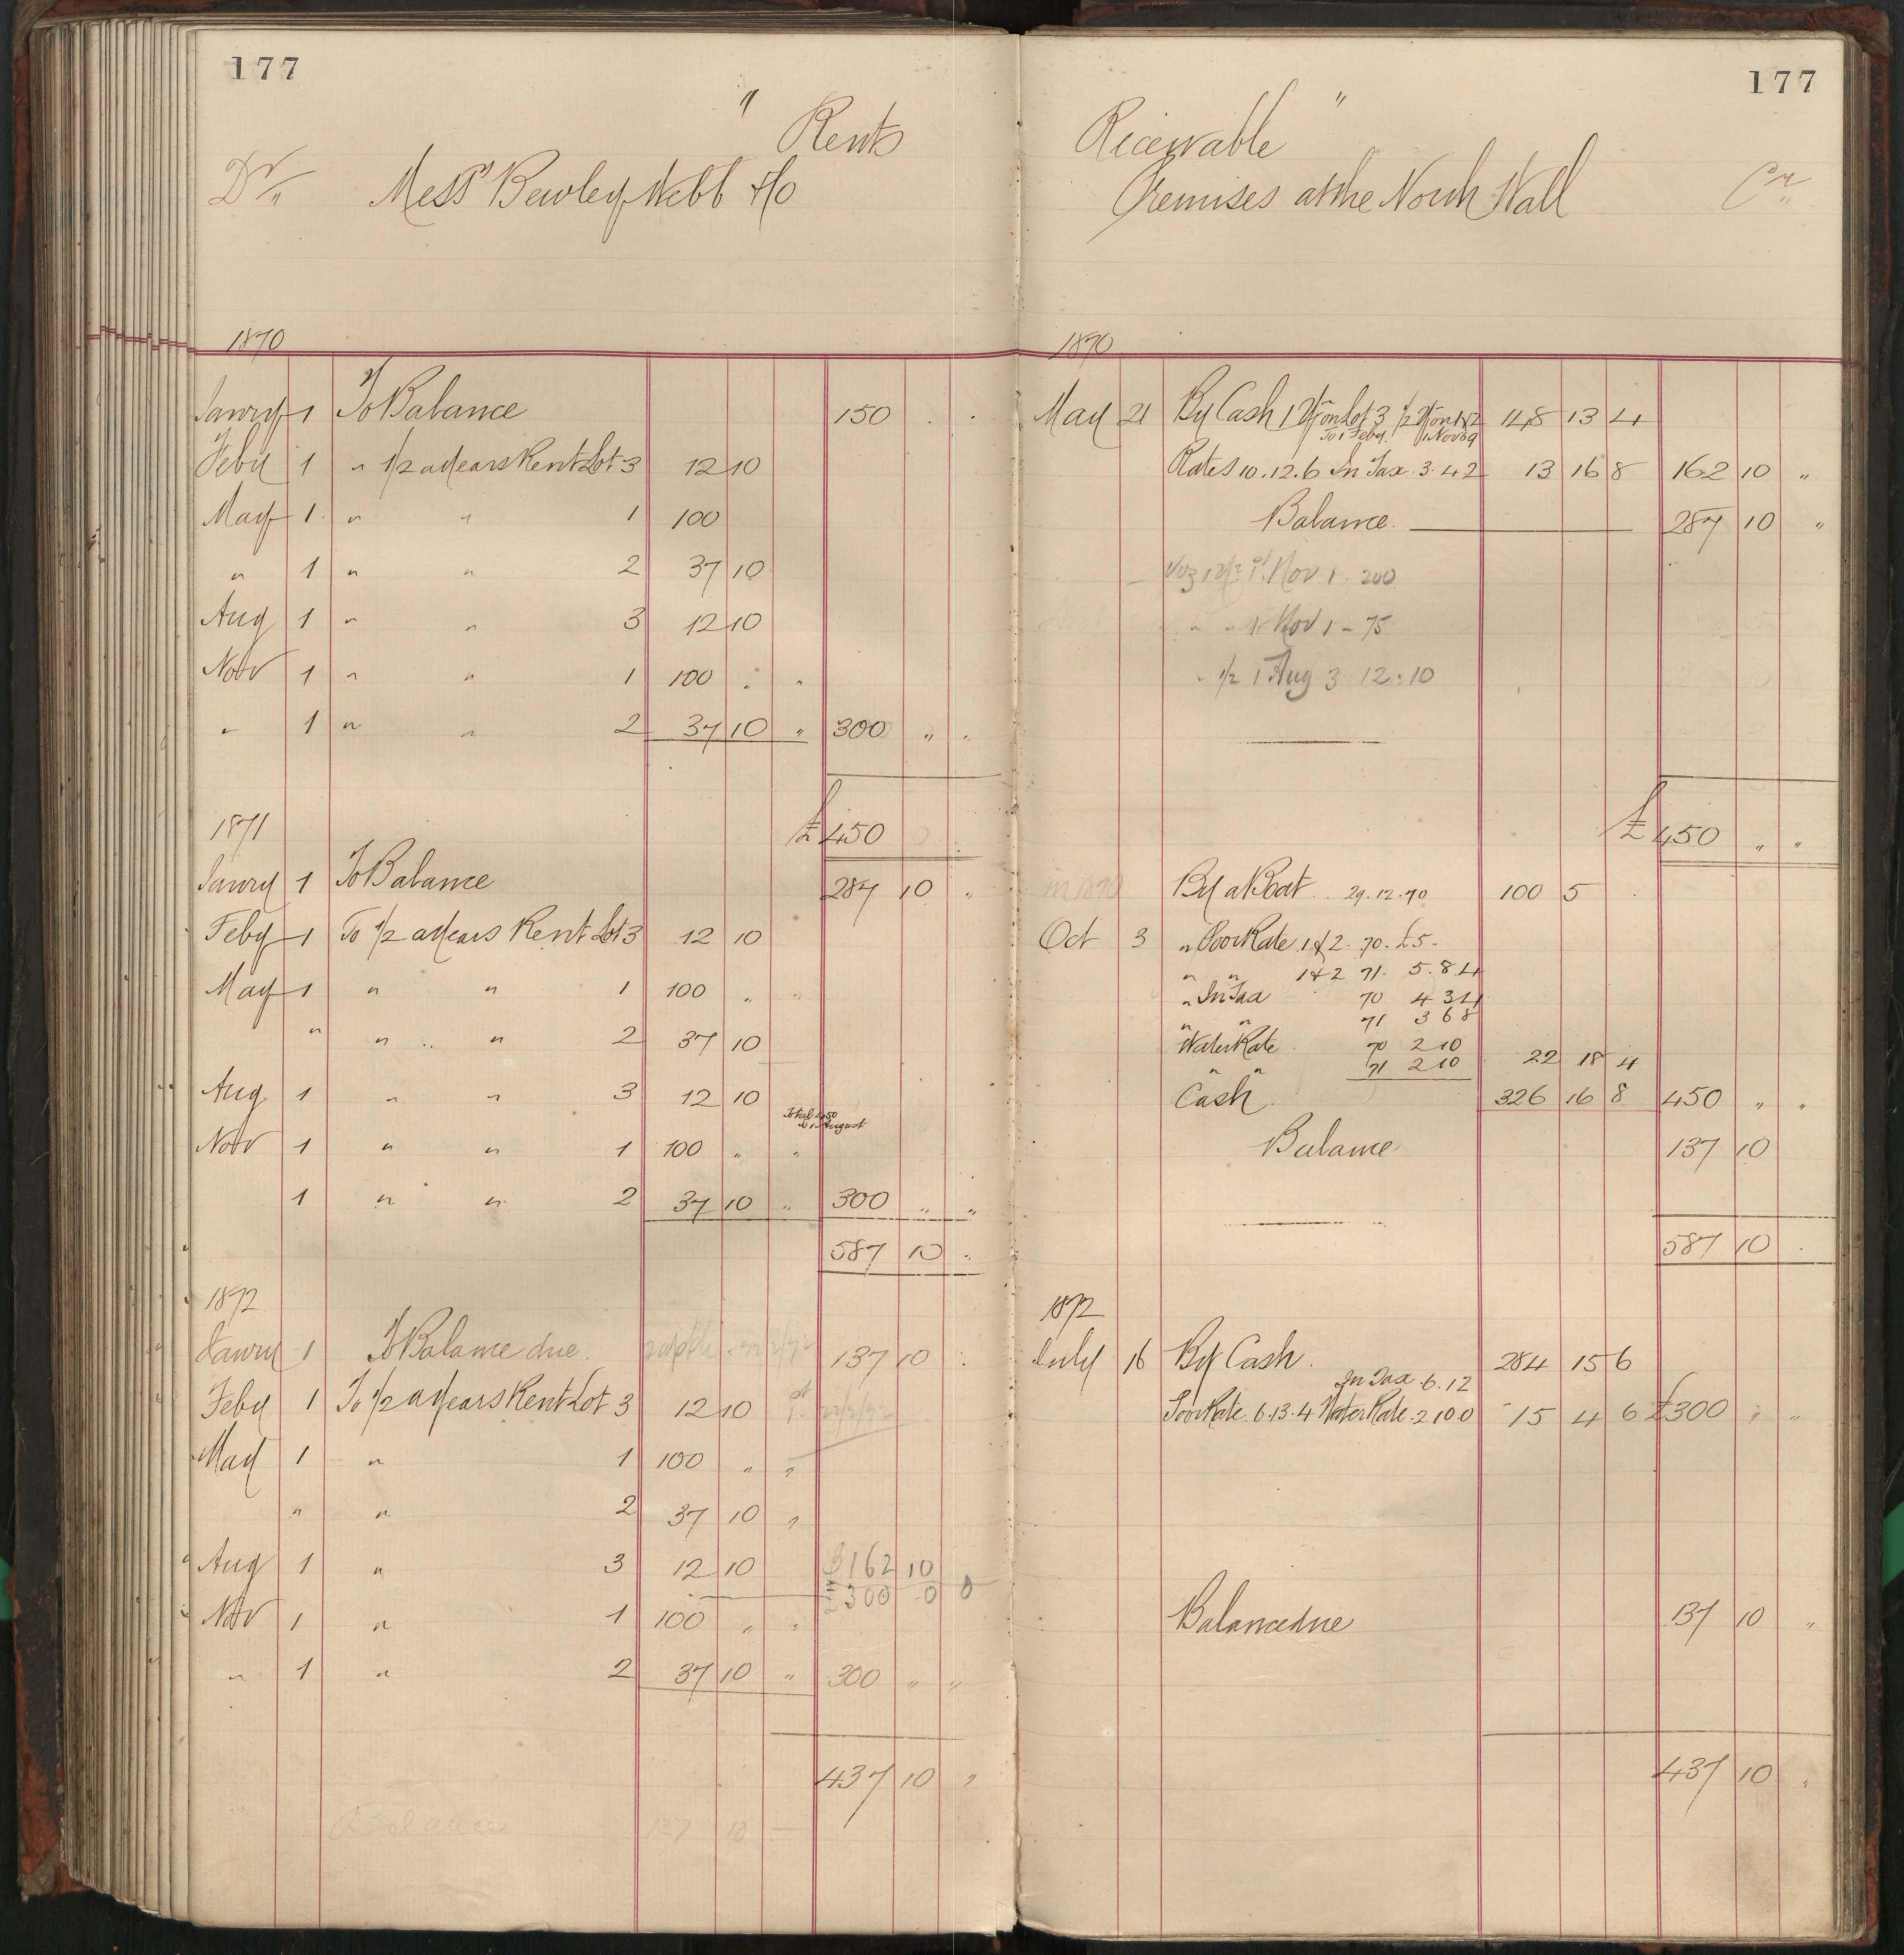 177
" Rents
Dr Mess<sup>rs</sup> Bewley Webb & Co
1870
Janry 1 To Balance 150 . .
Feby 1 " 1/2 a years Rent Lot 3 12 10
May 1 " " 1 100
" 1 " " 2 37 10
Aug 1 " " 3 12 10
Nov 1 " " 1 100 " "
" 1 " " 2 37 10 " 300 " "
£ 450
1871
Janry 1 To Balance 287 10 "
Feby 1 To 1/2 a years Rent Lot 3 12 10
May 1 " " 1 100 " "
" " " 2 37 10
Aug 1 " " 3 12 10
Total 450
to 1 August
Nov 1 " " 1 100 " "
1 " " 2 37 10 " 300 " "
587 10 "
1872
Janry 1 To Balance due 137 10 "
Feby 1 To 1/2 a years Rent Lot 3 12 10
May 1 " 1 100 " "
" " 2 37 10 "
Aug 1 " 3 12 10 162 10
300 0 0
Nov 1 " 1 100 " "
" 1 " 2 37 10 " 300 " "
437 10 "
Balance 137 10 —
177
Receivable "
Premises at the North Wall Cr
1870
May 21 By Cash 1 Yr on Lot 3 1/2 Yr on 1 & 2 148 13 4
To 1 Feby. 1 Nov 69
Rates 10.12.6 In Tax 3.4 2 13 16 8 162 10 "
Balance 287 10 "
Nov 1 200
" " Nov 1 - 75
" 1/2 1 Aug 3 12.10
£ 450 " "
in 1870 By a Boat 29.12.70 100 5
Oct 3 " Poor Rate 1 & 2. 70. £5.
" " 1 & 2 71. 5.8.4
" In Tax 70 4 3 4
" " 71 3 6 8
Water Rate 70 2 10
" " 71 2 10 22 18 4
Cash 326 16 8 450 " "
Balance 137 10
587 10 .
1872
July 16 By Cash. 284 15 6
In Tax 6.1 2
Poor Rate. 6.13.4 Water Rate. 2 10 0 15 4 6 £300 " "
Balance due 137 10 "
437 10 "